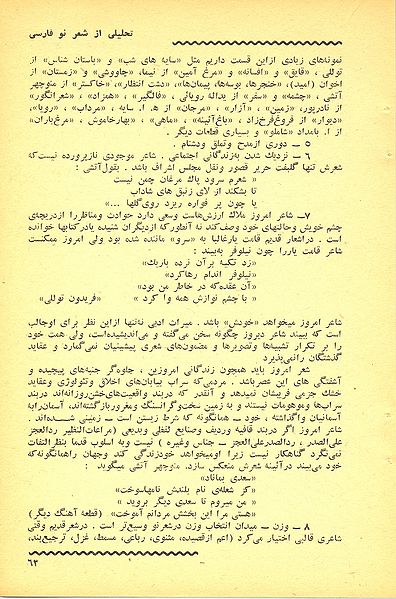 تحلیلی از شعر نو فارسی
نمونه‌های زیادی ازاین قسمت داریم مثل «سایه های شب» و «باستان شناس» از
توللی ، «قایق» و «افسانه» و «مرغ آمین» از نیما، «چاووشی» و «زمستان» از
اخوان (امید)، «خنجرها، بوسه‌ها، پیمان‌ها»، «دشت انتظار»، «خاکستر» از منوچهر
آتشی ، «چشمه» و «سفر» از یدالله رویائی ، «فالگیر» ، «همزاد» ، «شعرانگور»
از نادرپور، «زمین» ، «آزار» ، «مرجان» از ه . ا. سایه ، «مرداب» ، «رویا»،
«دیوار» از فروغ‌فرخ‌زاد ، «باغ‌آئینه» ، «ماهی» ، «بهارخاموش ، «مرغ‌باران»
از ا. بامداد «شاملو» و بسیاری قطعات دیگر .
۵ – دوری ازمدح وتملق ودشنام .
۶ – نزدیك شدن به‌زندگانی اجتماعی . شاعر موجودی نازپرورده نیست‌که
شعرش تنها گلبفت حریر قصور ونقل مجلس اشراف باشد . بقول‌آتشی :
« شعرم سرود پاك مرغان چمن نیست
تا بشکند از لای زنبق های شاداب
یا چون پر فواره ریزد روی‌گلها ...»
۷– شاعر امروز ملاك ارزش‌هاست وسعی دارد حوادث ومناظررا ازدریچه‌ی
چشم خویش وحالتهای خود وصف‌کند نه آنطورکه ازدیگران شنیده یادرکتابها خوانده
است . دراشعار قدیم قامت یارغالبا به «سرو» ماننده شده بود ولی امروز ممکنست
شاعر قامت یاررا چون نیلوفر به‌بیند :
«زد تکیه برآن نرده باریك»
«نیلوفر اندام رهاکرد»
«آن عقده‌که در خاطر من بود»
« با چشم نوازش همه وا کرد » «فریدون توللی»
شاعر امروز میخواهد «خودش» باشد . میراث ادبی نه‌تنها ازاین نظر برای اوجالب
است که ببیند شاعر دیروز چگونه سخن می‌گفته و می‌اندیشیده‌است، ولی همت خود
را بر تکرار تشبیه‌ها وتصویرها و مضمون‌های شعری پیشینیان نمی‌گمارد و عقاید
گذشتگان رانمی‌پذیرد
شعر امروز باید همچون زندگانی امروزین ، جلوه‌گر جنبه‌های پیچیده و
آشفتگی های این عصرباشد . مردمی‌که سراب بیابان‌های اخلاق وتئولوژی وعقاید
خشك جزمی فریبشان نمیدهد و آنقدر که دربند واقعیت‌های‌خشن‌روزانه‌اند دربند
سراب‌ها وموهومات نیستند و به زمین سخت‌وگرانسنگ ومغرور بازگشته‌اند، آسمان‌رابه
آسمانیان واگذاشته ، خود – همانگونه که شرط زیستن است – زمینی شده‌اند .
شاعر امروز اگر دربند قافیه وردیف وصنایع لفظی وبدیعی (مراعات‌النظیر ردالعجز
علی‌الصدر ، ردالصدرعلی‌العجز – جناس وغیره ) نیست وبه اسلوب قدما بنظرالتفات
نمی‌نگرد گناهکار نیست زیرا اومیخواهد خودزندگی کند وجهان راهمانگونه‌که
خود می‌بیند درآئینه شعرش منعکس سازد. منوچهر آتشی میگوید :
«سعدی بماناد»
«کز شعله‌ی نام بلندش نامهاسوخت»
« من میروم تا سعدی دیگر بروید »
«هستی مرا این بخشش مردانم آموخت» (قطعه آهنگ دیگر)
۸ – وزن – میدان انتخاب وزن درشعرنو وسیع‌تر است . درشعرقدیم وقتی
شاعری قالبی اختیار می‌کرد (اعم ازقصیده، مثنوی، رباعی، مسمط، غزل، ترجیع‌بند،
۶۳